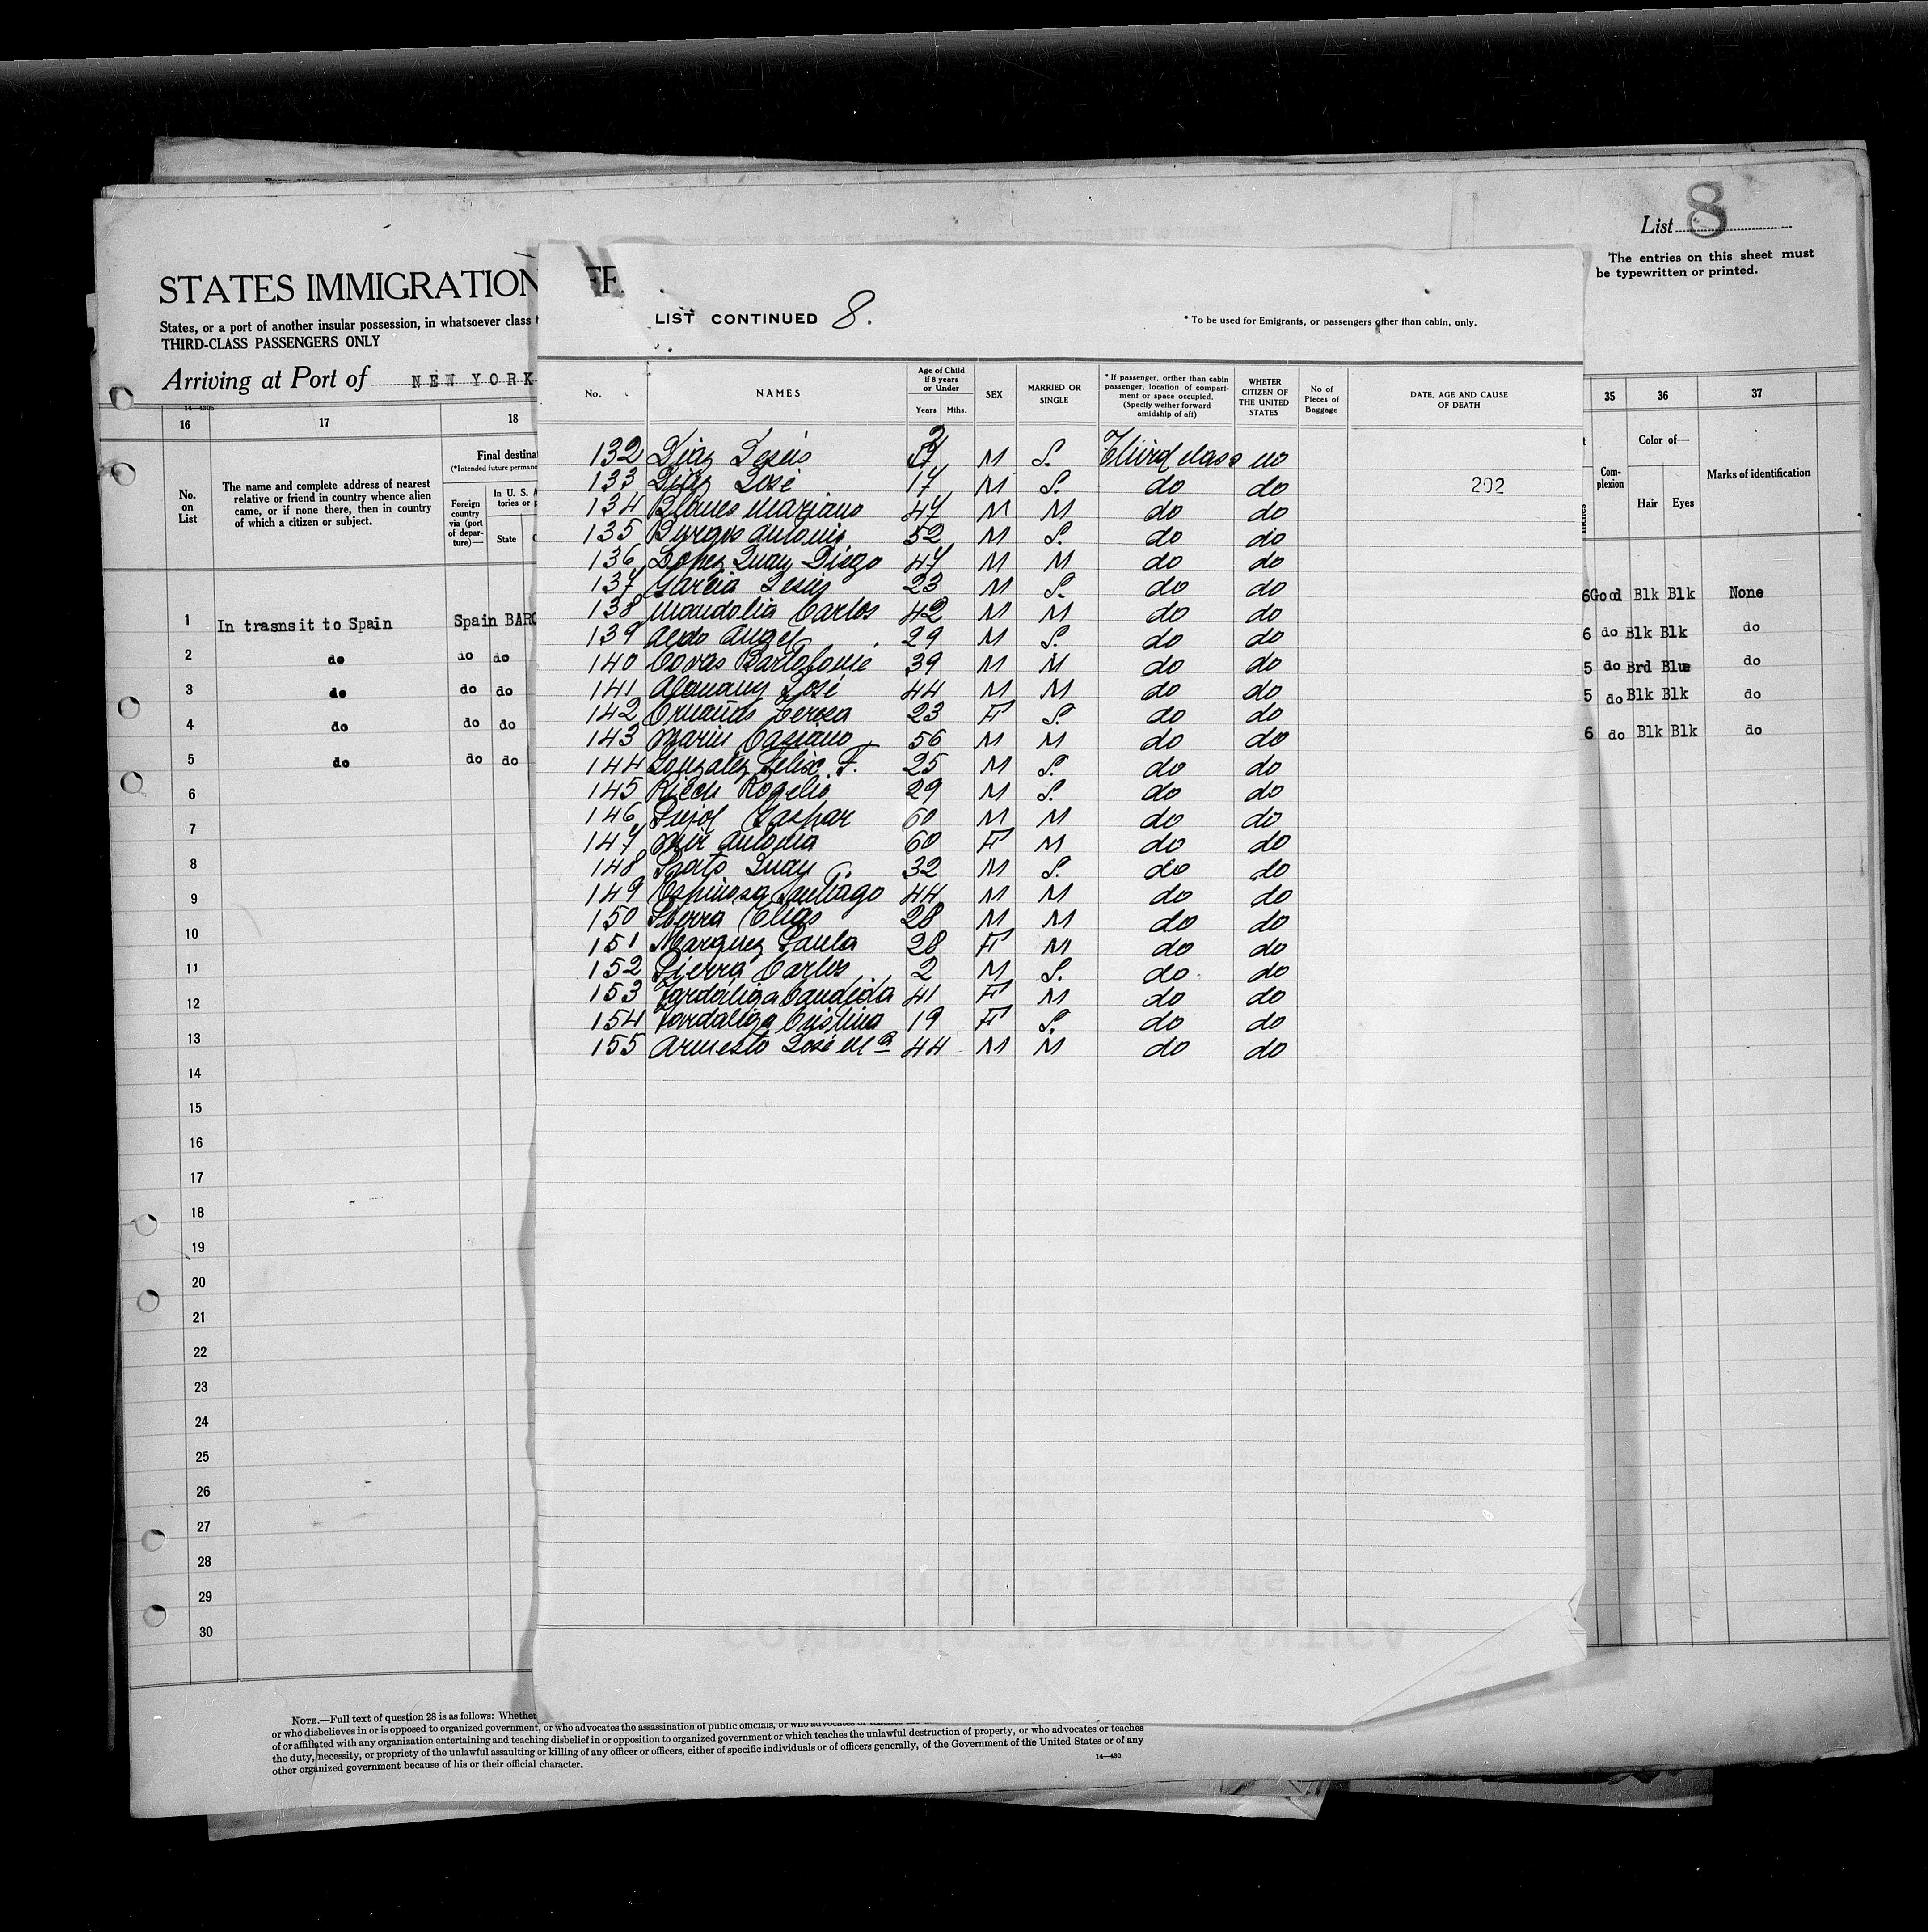 List 8
The entries on this sheet must
be typewritten or printed.
STATES IMMIGRATION
States, or a port of another insular possession, in whatsoever class
THIRD-CLASS PASSENGERS ONLY
Arriving at Port of NEW YORK
14—430b
16 17 18
No.
on
List
The name and complete address of nearest
relative or friend in country whence alien
came, or if none there, then in country
of which a citizen or subject.
Final destina
(*Intended future permane
Foreign
country
via (port
of depar-
ture)—
In U. S. A
tories or p
State
1 In trasnsit to Spain Spain BARC
2 do do do
3 do do do
4 do do do
5 do do do
6
7
8
9
10
11
12
13
14
15
16
17
18
19
20
21
22
23
24
25
26
27
28
29
30
LIST CONTINUED 8.
* To be used for Emigrants, or passengers other than cabin, only.
No.
NAMES
Age of Child
If 8 years
or Under
Years Mths.
SEX
MARRIED OR
SINGLE
* If passenger, orther than cabin
passenger, location of compart-
ment or space occupied.
(Specify wether forward
amidship of aft)
WHETER
CITIZEN OF
THE UNITED
STATES
No of
Pieces of
Baggage
DATE, AGE AND CAUSE
OF DEATH
132 Diaz Jesús M S. Third class no
133 Diaz José 17 M S. do do 292
134 Blanes Mariano 47 M M do do
135 Burgos Antonio 52 M S. do do
136 Lopez Juan Diego 47 M M do do
137 Garcia Jesús 23 M S. do do
138 Mandolia Carlos 42 M M do do
139 Aedo Angel 29 M S. do do
140 Covas Bartolomé 39 M M do do
141 Alemany José 44 M M do do
142 Teresa 23 F S. do do
143 Marin Casiano 56 M M do do
144 Gonzalez Felix F. 25 M S. do do
145 Rogelio 29 M S. do do
146 Pujol Gaspar 60 M M do do
147 Mir Antonia 60 F M do do
148 Juan 32 M S. do do
149 Espinosa Santiago 44 M M do do
150 Sierra Elias 28 M M do do
151 Marquez Paula 28 F M do do
152 Sierra Carlos 2 M S. do do
153 Candida 41 F M do do
154 Cristina 19 F S. do do
155 Armesto José Mª 44 M M do do
35 36 37
Com-
plexion
Color of—
Hair Eyes
Marks of identification
6 Good Blk Blk None
6 do Blk Blk do
5 do Brd Blue do
5 do Blk Blk do
6 do Blk Blk do
NOTE.—Full text of question 28 is as follows: Whether
or who disbelieves in or is opposed to organized government, or who advocates the assassination of public officials, or who advocates or teaches the
of or affiliated with any organization entertaining and teaching disbelief in or opposition to organized government or which teaches the unlawful destruction of property, or who advocates or teaches
the duty, necessity, or propriety of the unlawful assaulting or killing of any officer or officers, either of specific individuals or of officers generally, of the Government of the United States or of any
other organized government because of his or their official character.
14—430